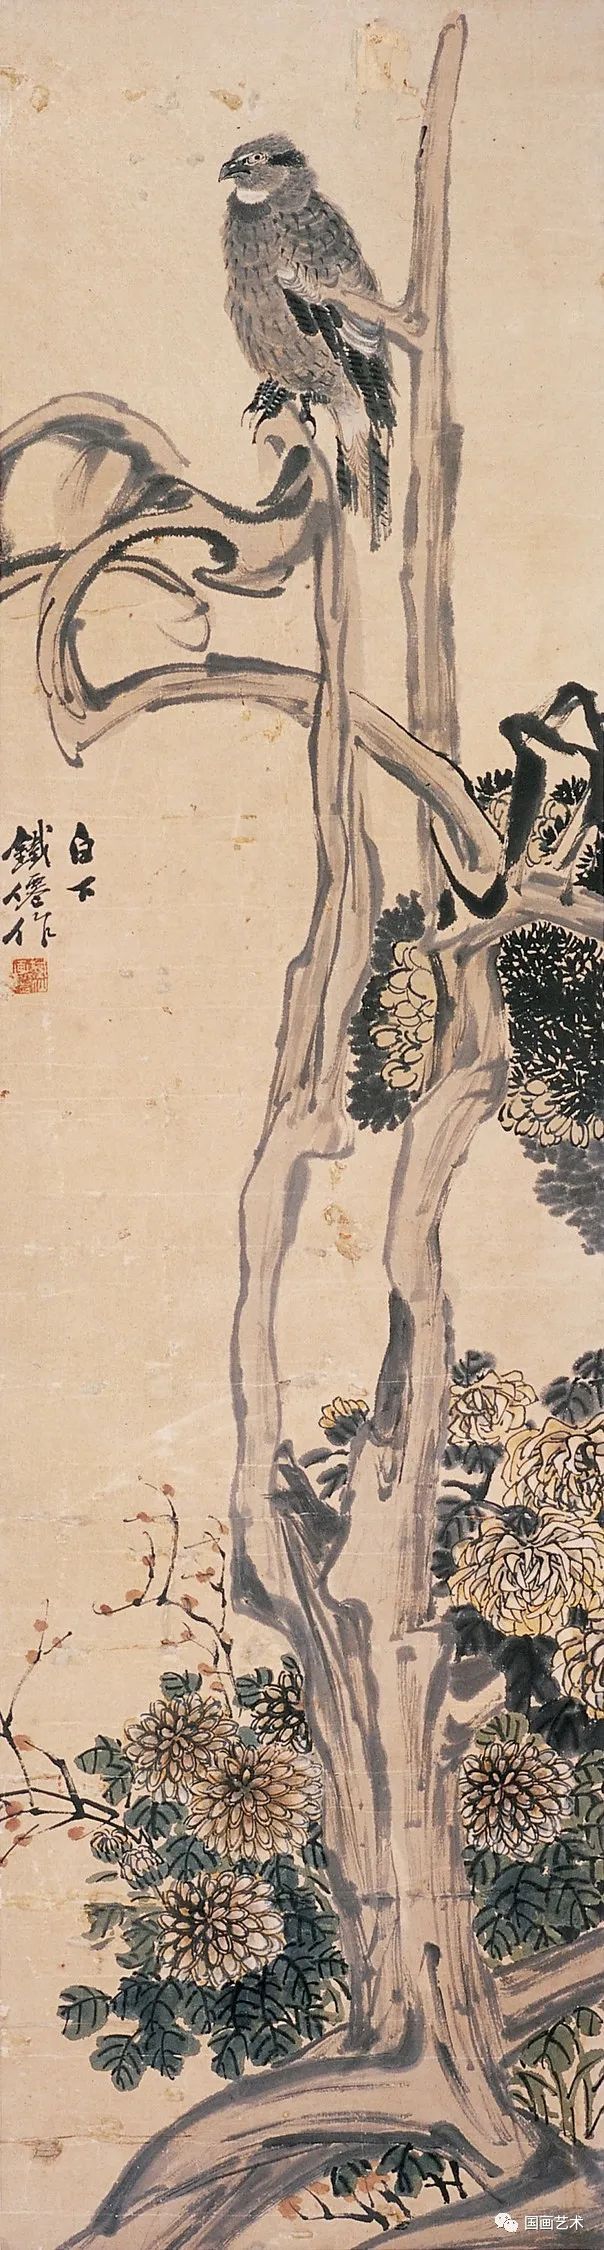 白下
鐵僊作
国画艺术